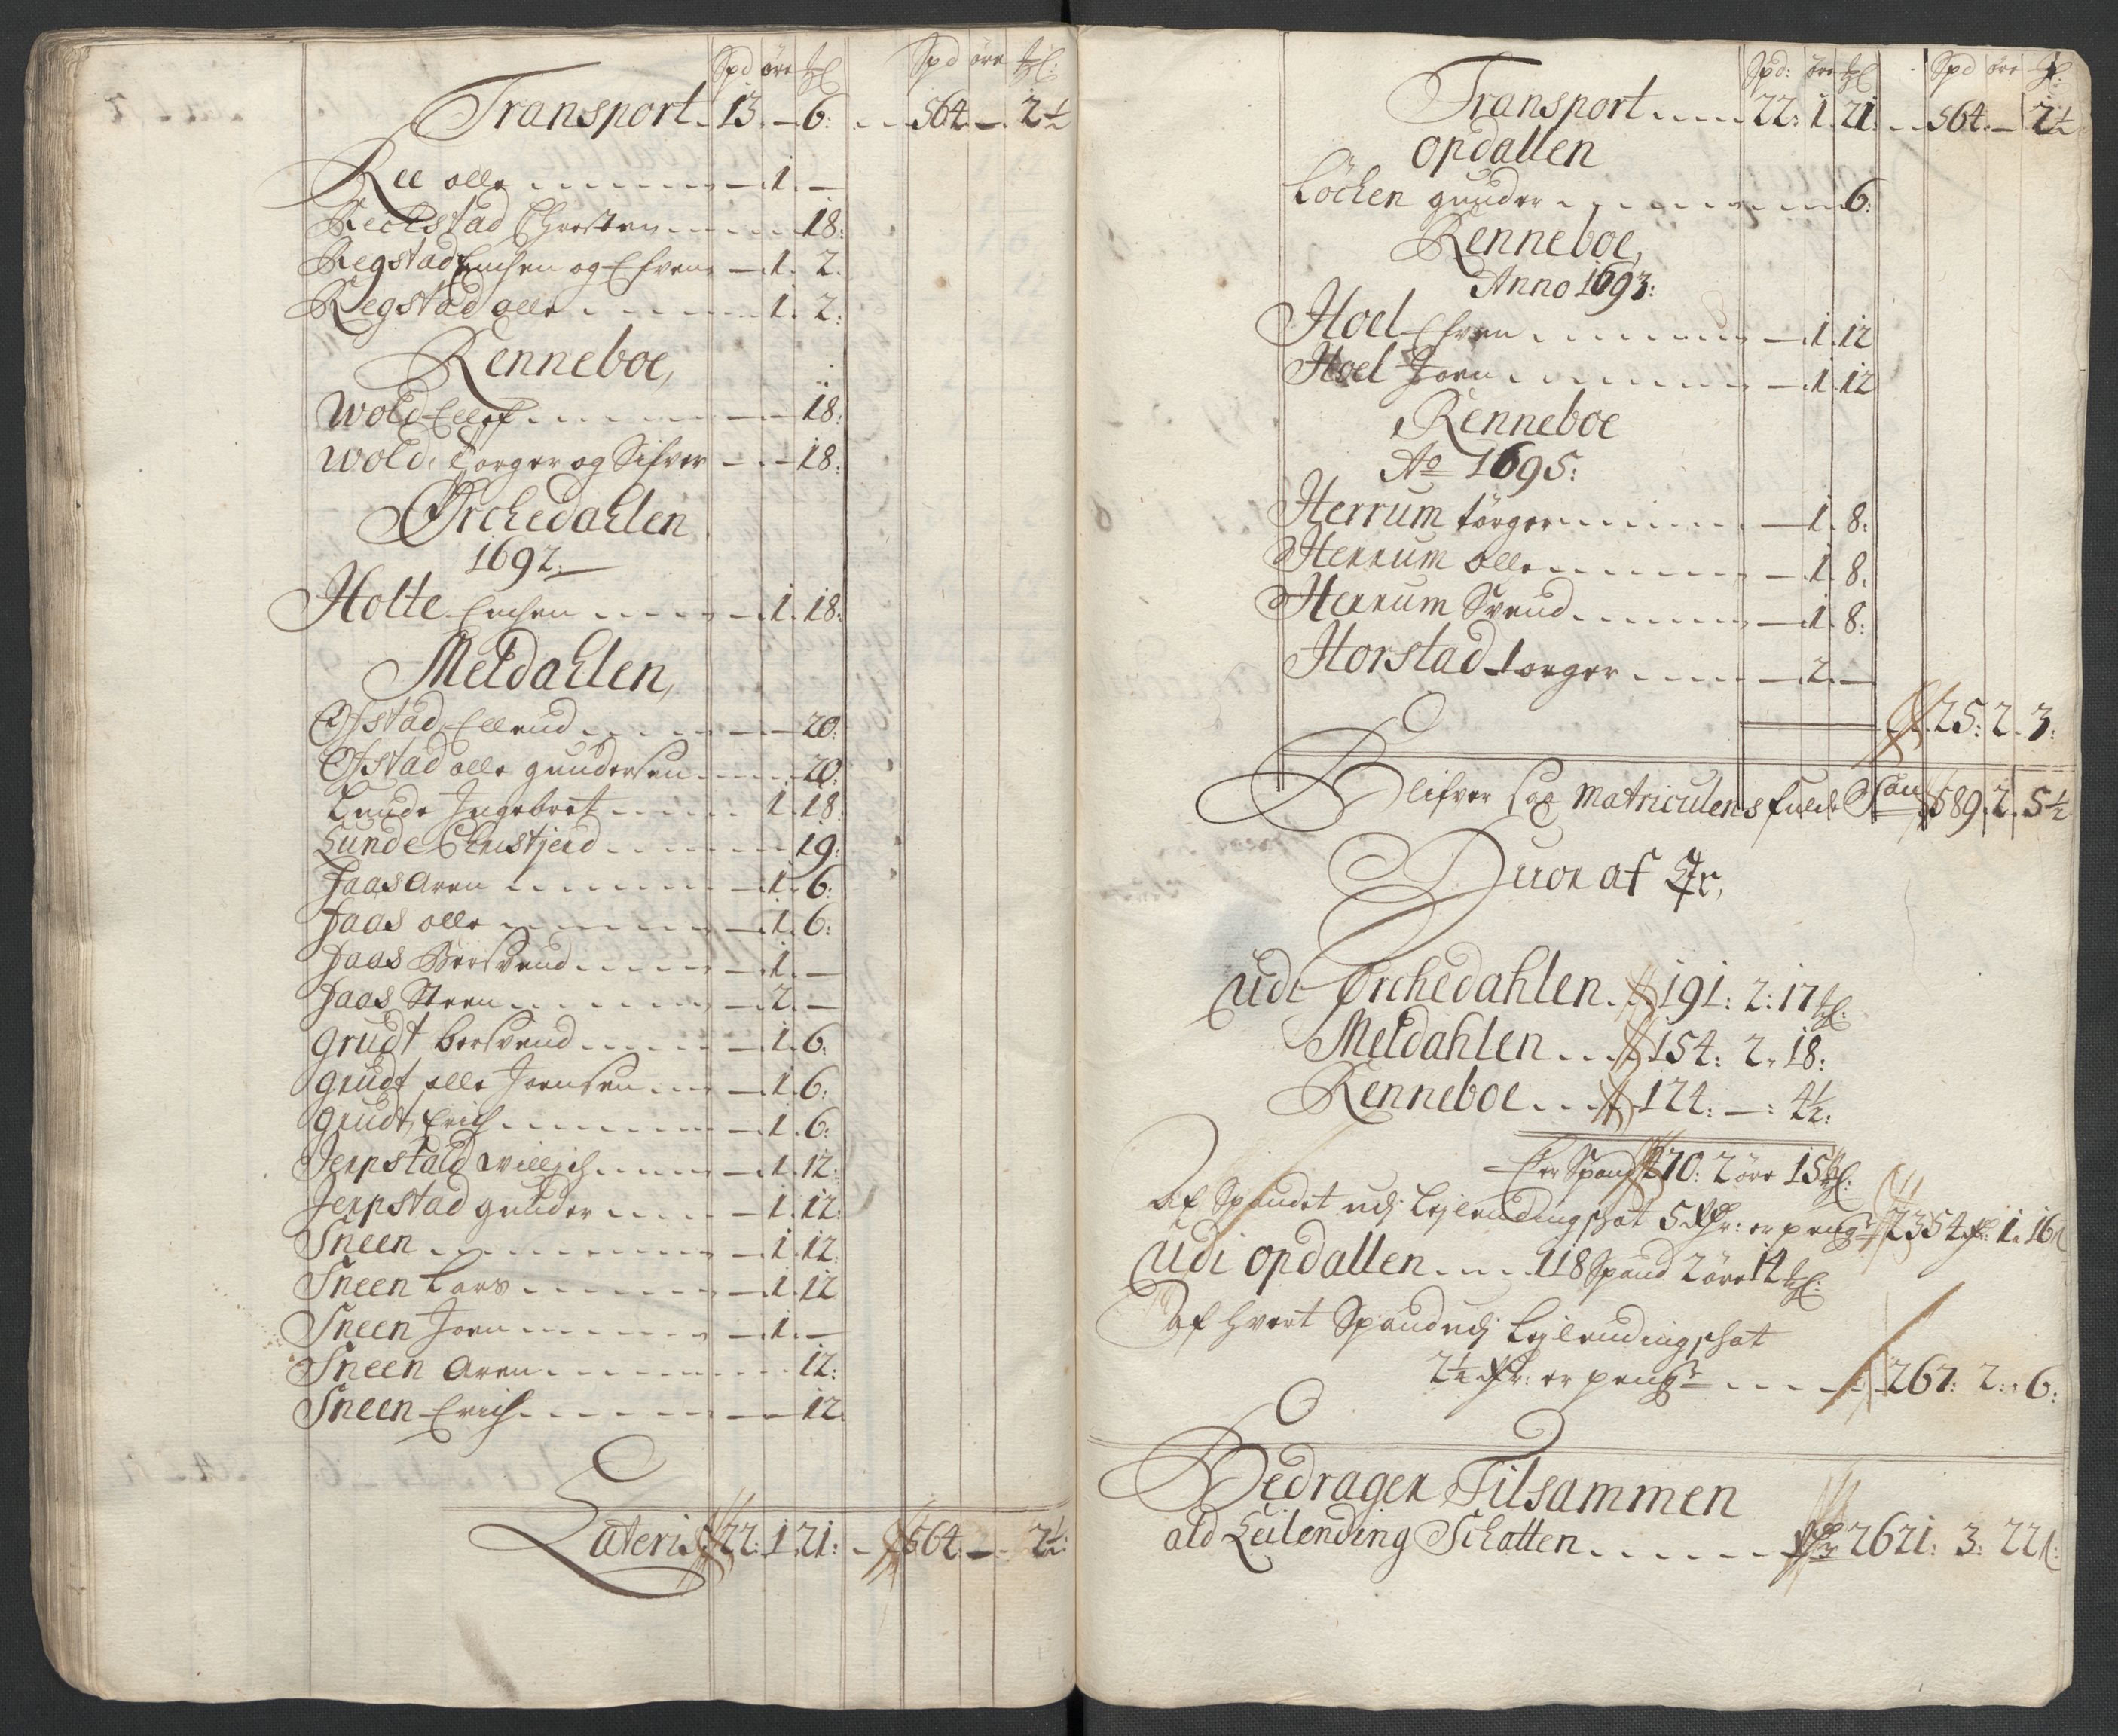 Spd øre Spd øre
Transport . 13 . — 6: . . 564 . — . 2½
Ree olle . . . . . . . — . 1 . —
Reckstad Christen . . . . . . 18:
Regstad og — . 1 . 2.
Regstad olle . . . . . . . 1 . 2:
Renneboe,
Wold Ellef . . . . . . . — 18:
Wold, Torger og Sifver — . — 18:
Ørchedahlen
1692.
Holte . . . . . — . 1 . 18:
Meldahlen,
Ofstad, Ellend . . . . . . — 20:
Ofstad olle gundersen . . . . . 20:
Lunde Ingebret . . . . . . 1 . 18
Lunde Christjerd . . . . . . . 19:
Jaas Aren . . . . . . . — . 1 . 6:
Jaas olle . . . . . . . — . 1 . 6:
Jaas Bersvend . . . . . — . 1 . —
Jaas Steen . . . . . . — . 2 . —
grudt bersvend . . . . . . — . 1 . 6:
grudt olle Joensen . . . — . 1 . 6:
grudt, Erich . . . . . . . — . 1 . 6:
Jerpstald willich . . . . . — . 1 . 12:
Jerpstad gunder . . . . . — . 1 . 12:
Sneen . . . . . . . . . . — . 1 . 12:
Sneen Lars . . . . . . . — . 1 . 12
Sneen Joen . . . . . . . — . 1 . —
Sneen Aren . . . . . . . . . 12:
Sneen Erich . . . . . . . — — 12.
Lateris 22: 1 21: — 564 . — . 2½:
Spd: øre Spd øre
Transport . . . . . 22: 1 . 21: . . 564 . — 2½
Opdallen
Löchen gunder . . . . . . . . 6:
Renneboe,
Anno 1693:
Hoel . . . . . . . — . 1 . 12
Hoel Joen . . . . . . . — . 1 . 12
Renneboe
Ao 1695:
Herrum törger . . . . . . . — 1 . 8:
Herrum olle . . . . . . . — . 1 . 8.
Herrum Svend . . . . . . . — . 1 . 8:
Horstad Torger . . . . . — . 2 . —
25: 2 . 3:
Blifver saa Matriculens fulde 589 . 2 . 5½
Huor af
udi Ørchedahlen . . 191: 2: 17
Meldahlen . . . 154: 2 . 18:
Renneboe . . . 124: — : 4½:
Er Spand 470: 2 øre 15½
Af Spandet udj Lejlendingschat 5 er penge 2354 1: 16
Udi opdallen . . . . 118 Spand 2 øre 14
Af hvert Spand udj Lejlendingschat
2¼ er penge . . . . 267: 2: 6:
Bedrager Tilsammen
ald Leilending Schatten . . . . . . 2621: 3: 22